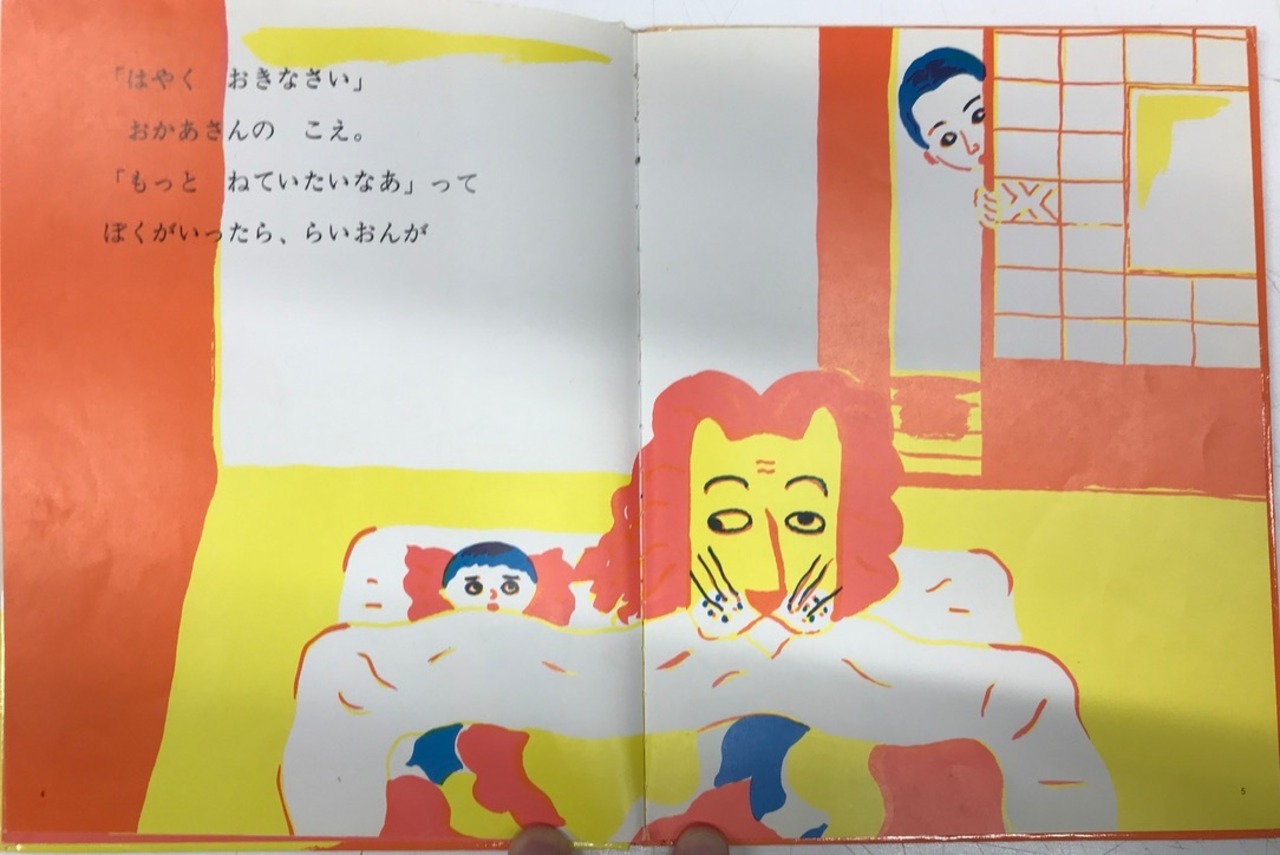 「はやく　おきなさい」
おかあさんの　こえ。
「もっと　ねていたいなあ」って
ぼくがいったら、らいおんが
4
5